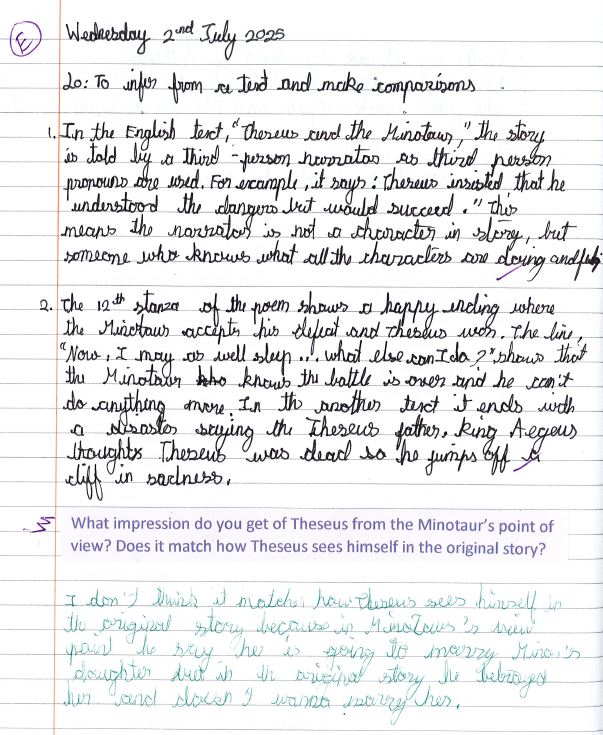 E
Wednesday 2nd July 2025
Lo: To infer from a text and make comparisons.
1. In the English text, "Theseus and the Minotaur," the story
is told by a third-person narrator as third person
pronouns are used. For example, it says: Theseus insisted that he
understood the dangers but would succeed." This
means the narrator is not a character in story, but
someone who knows what all the characters are doing and
2. The 12th stanza of the poem shows a happy ending where
the Minotaur accepts his defeat and Theseus won. The line,
"Now, I may as well sleep ... what else can I do?" shows that
the Minotaur knows the battle is over and he can't
do anything more. In th another text it ends with
a disaster saying the Theseus father, king Aegeus
thoughts Theseus was dead so he jumps off a
cliff in sadness.
What impression do you get of Theseus from the Minotaur's point of
view? Does it match how Theseus sees himself in the original story?
I don't think it matches how Theseus sees himself in
the original story because in Minotaurs's view
point he say he is going to marry Mino's
daughter but in th original story he betrayed
her and doesn't wanna marry her.